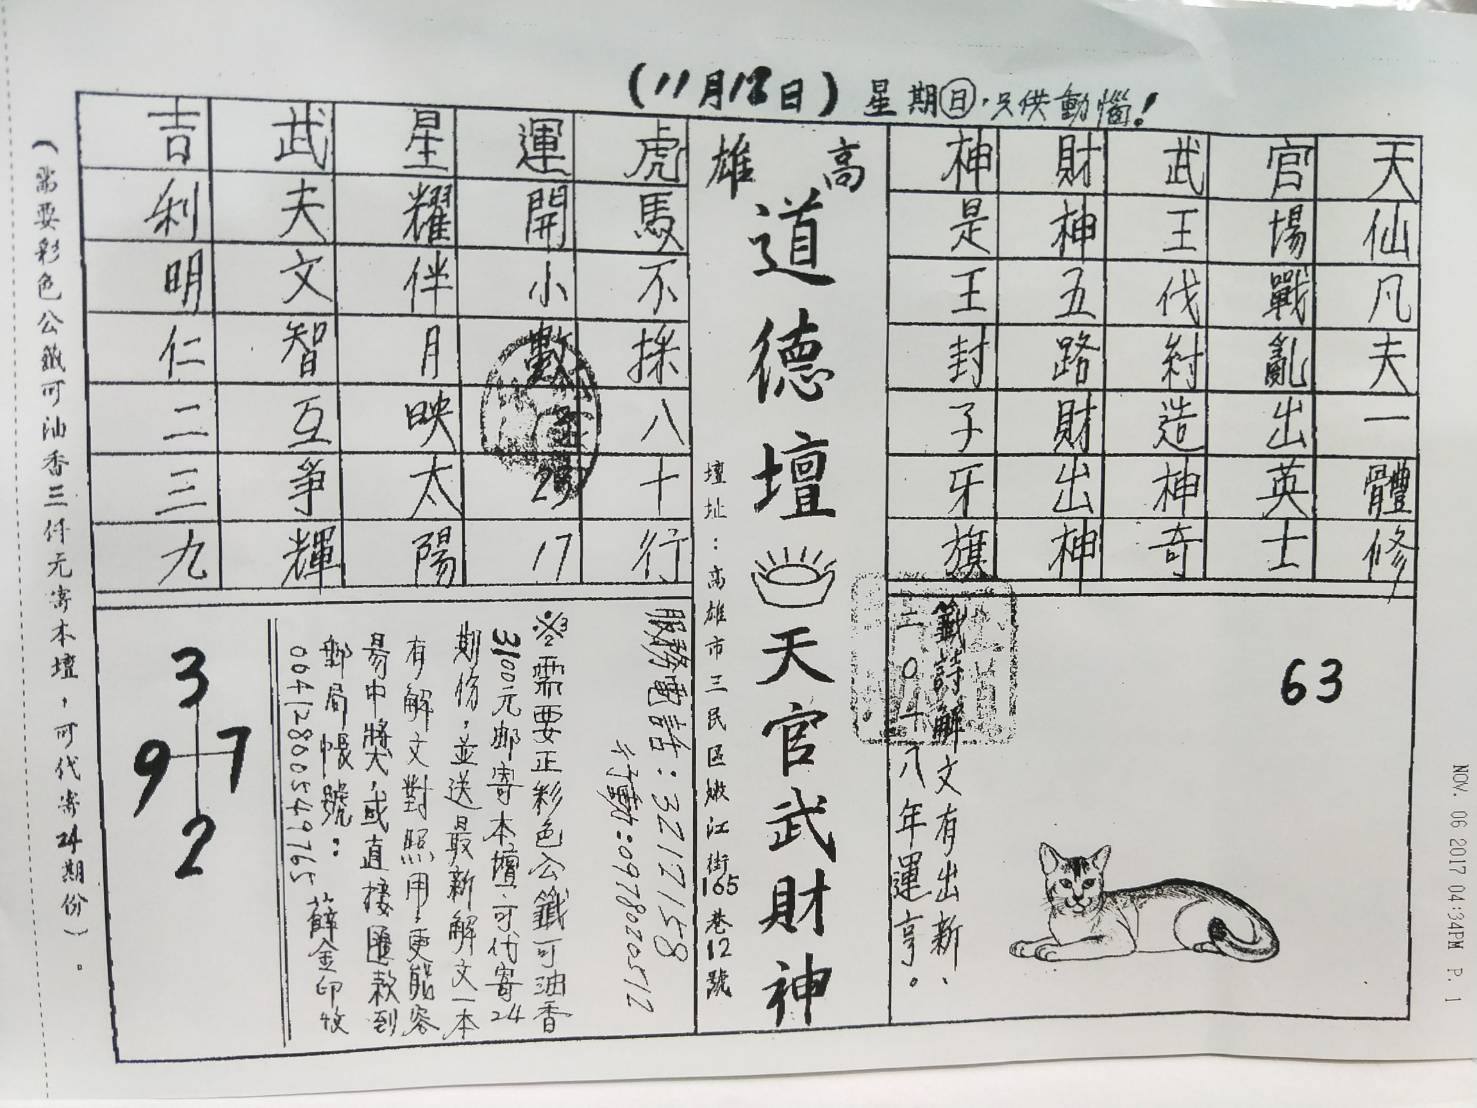 (11月12日) 星期日,只供動惱!
天仙凡夫一體修
官場戰亂出英士
武王伐紂造神奇
財神五路財出神
神是王封子牙旗
高雄
道德壇天官武財神
壇址:高雄市三民區嫩江街165巷12號
虎馬不採八十行
運開小數 17
星耀伴月映太陽
武夫文智互爭輝
吉利明仁二三九
63
籤詩解文有出新、
二0一八年運亨。
服務電話:3217158
行動:0978020512
※需要正彩色公籤可油香
3100元郵寄本壇可代寄24
期份,並送最新解文一本
有解文對照用,更能容
易中獎,或直接匯款到
郵局帳號:薛金印收
00412800549765
3
9 7
2
(需要彩色公籤可油香三仟元寄本壇,可代寄24期份)。
NOV. 06 2017 04:34PM P. 1